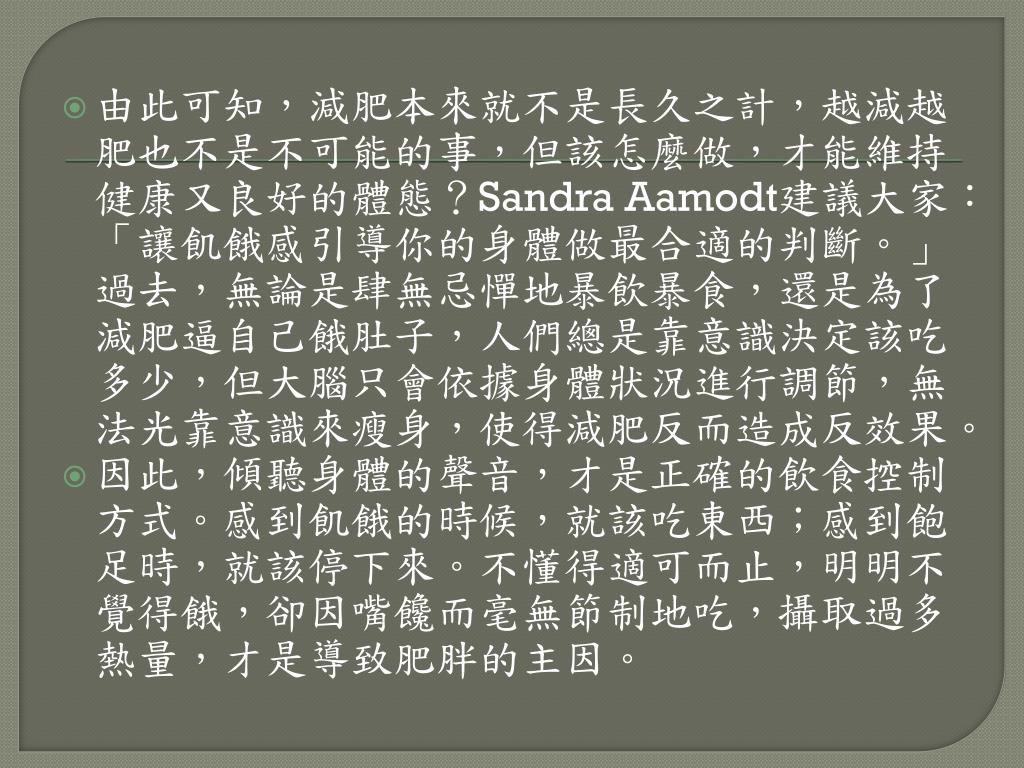 由此可知，減肥本來就不是長久之計，越減越
肥也不是不可能的事，但該怎麼做，才能維持
健康又良好的體態？Sandra Aamodt建議大家：
「讓飢餓感引導你的身體做最合適的判斷。」
過去，無論是肆無忌憚地暴飲暴食，還是為了
減肥逼自己餓肚子，人們總是靠意識決定該吃
多少，但大腦只會依據身體狀況進行調節，無
法光靠意識來瘦身，使得減肥反而造成反效果。
因此，傾聽身體的聲音，才是正確的飲食控制
方式。感到飢餓的時候，就該吃東西；感到飽
足時，就該停下來。不懂得適可而止，明明不
覺得餓，卻因嘴饞而毫無節制地吃，攝取過多
熱量，才是導致肥胖的主因。